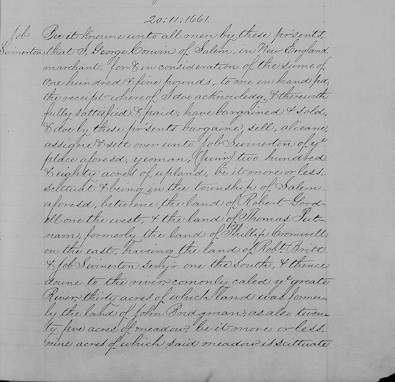 20:11:1661.
Job Swinerton
Bee it knowne unto all men by these presents
that I, George Corwin of Salem, in New England
marchant, for & in consideration of the sume of
one hundred & five pounds, to one in hand pd,
the receipt whereof I doe acknowledg, & therewith
fully sattesfied & paid, have bargained & sold,
& doe by these presents bargaine, sell, alieane,
assigne & sett over unto Job Swinerton of ye
place aforesd, yeoman, (Junir) two hundred
& eighty acres of upland, be it more or less
scittuate & being in the township of Salem
aforesd, betweene the land of Robert Good-
ell one the west, & the land of Thomas Put-
nam, formerly the land of Phillip Cromwell
on the east, haveing the land of Robt. Britt
& Job Swinerton Senjr. one the south, & thence
downe to the river comonly caled ye greate
River, thirty acres of which land was former-
ly the land of John Bridgman, as also twen-
ty five acres of meadow, be it more or less
nine acres of which said meadow is scittuate